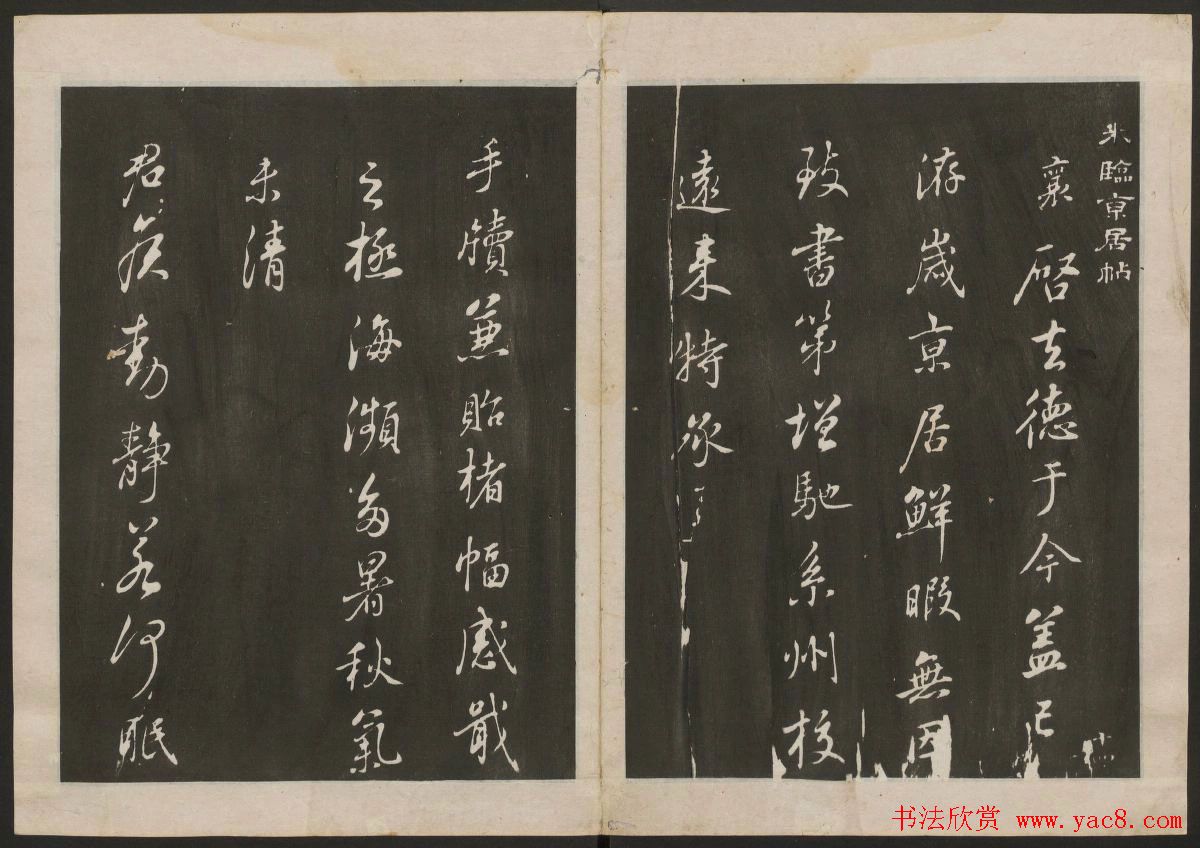 臨京居帖
襄啓去德于今蓋已
洊歲京居鮮暇無因
致書第增馳系州校
遠来特承
手牘兼貽楮幅感戢
之極海瀕多暑秋氣
未清
君侯動靜若何眠
书法欣赏 www.yac8.com